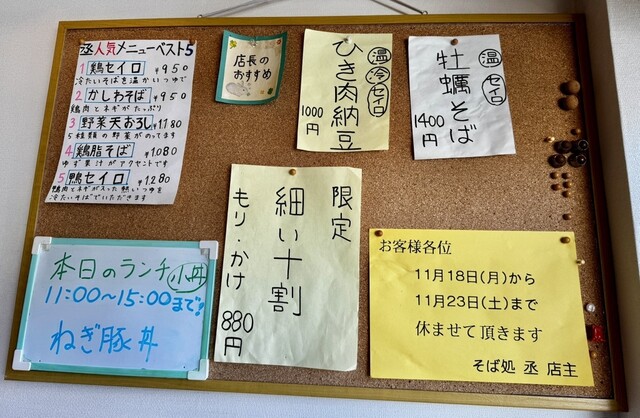 丞人気メニューベスト5
1 鶏セイロ ¥950
冷たいそばを温かいつゆで
2 かしわそば ¥950
鶏肉とネギがたっぷり
3 野菜天おろし ¥1180
5種類の野菜がのってます
4 鶏脂そば ¥1080
ゆず果汁がアクセントです
5 鴨セイロ ¥1280
鴨肉とネギが入った熱いつゆを
冷たいそばでいただきます
店長の
おすすめ
温 冷 セイロ
ひき肉納豆
1000円
温 セイロ
牡蠣そば
1400円
本日のランチ 小丼
11:00〜15:00まで!
ねぎ豚丼
限定
細い十割
もり・かけ 880円
お客様各位
11月18日(月)から
11月23日(土)まで
休ませて頂きます
そば処 丞 店主